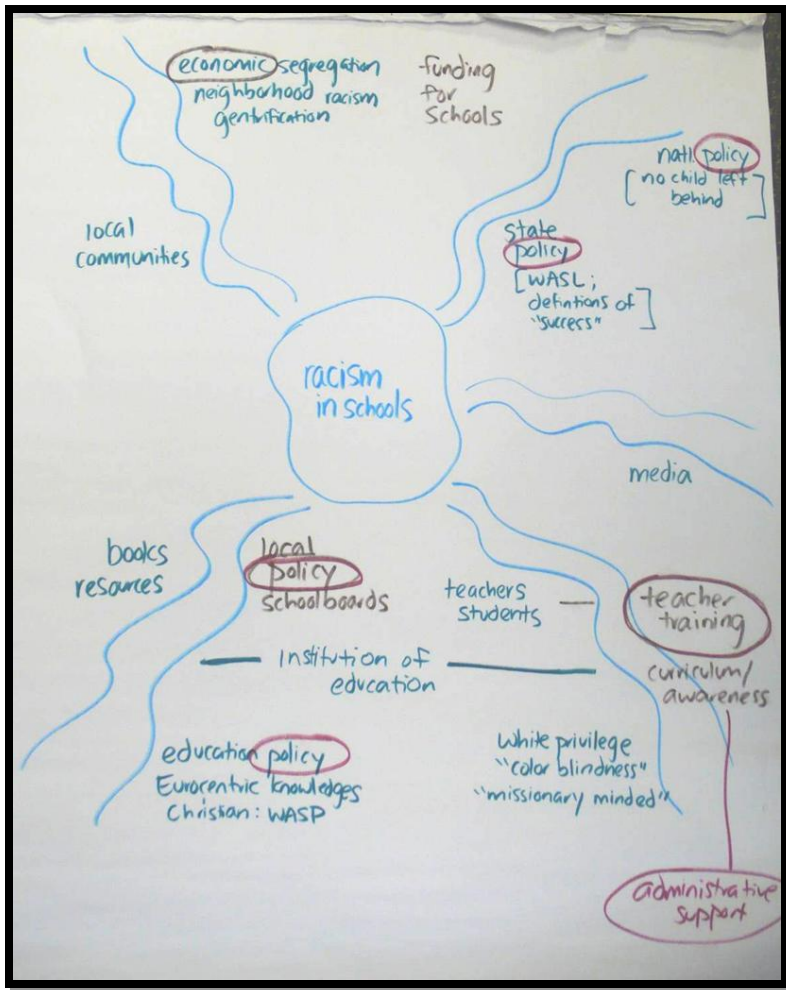 economic segregation
neighborhood racism
gentrification
funding
for
schools
natl. policy
[no child left
behind]
local
communities
state
policy
[WASL;
defintions of
"success"]
racism
in schools
media
books
resources
local
policy
schoolboards
teachers
students
teacher
training
curriculum/
awareness
Institution of
education
education policy
Eurocentric knowledges
Christian: WASP
White privilege
"color blindness"
"missionary minded"
administrative
support